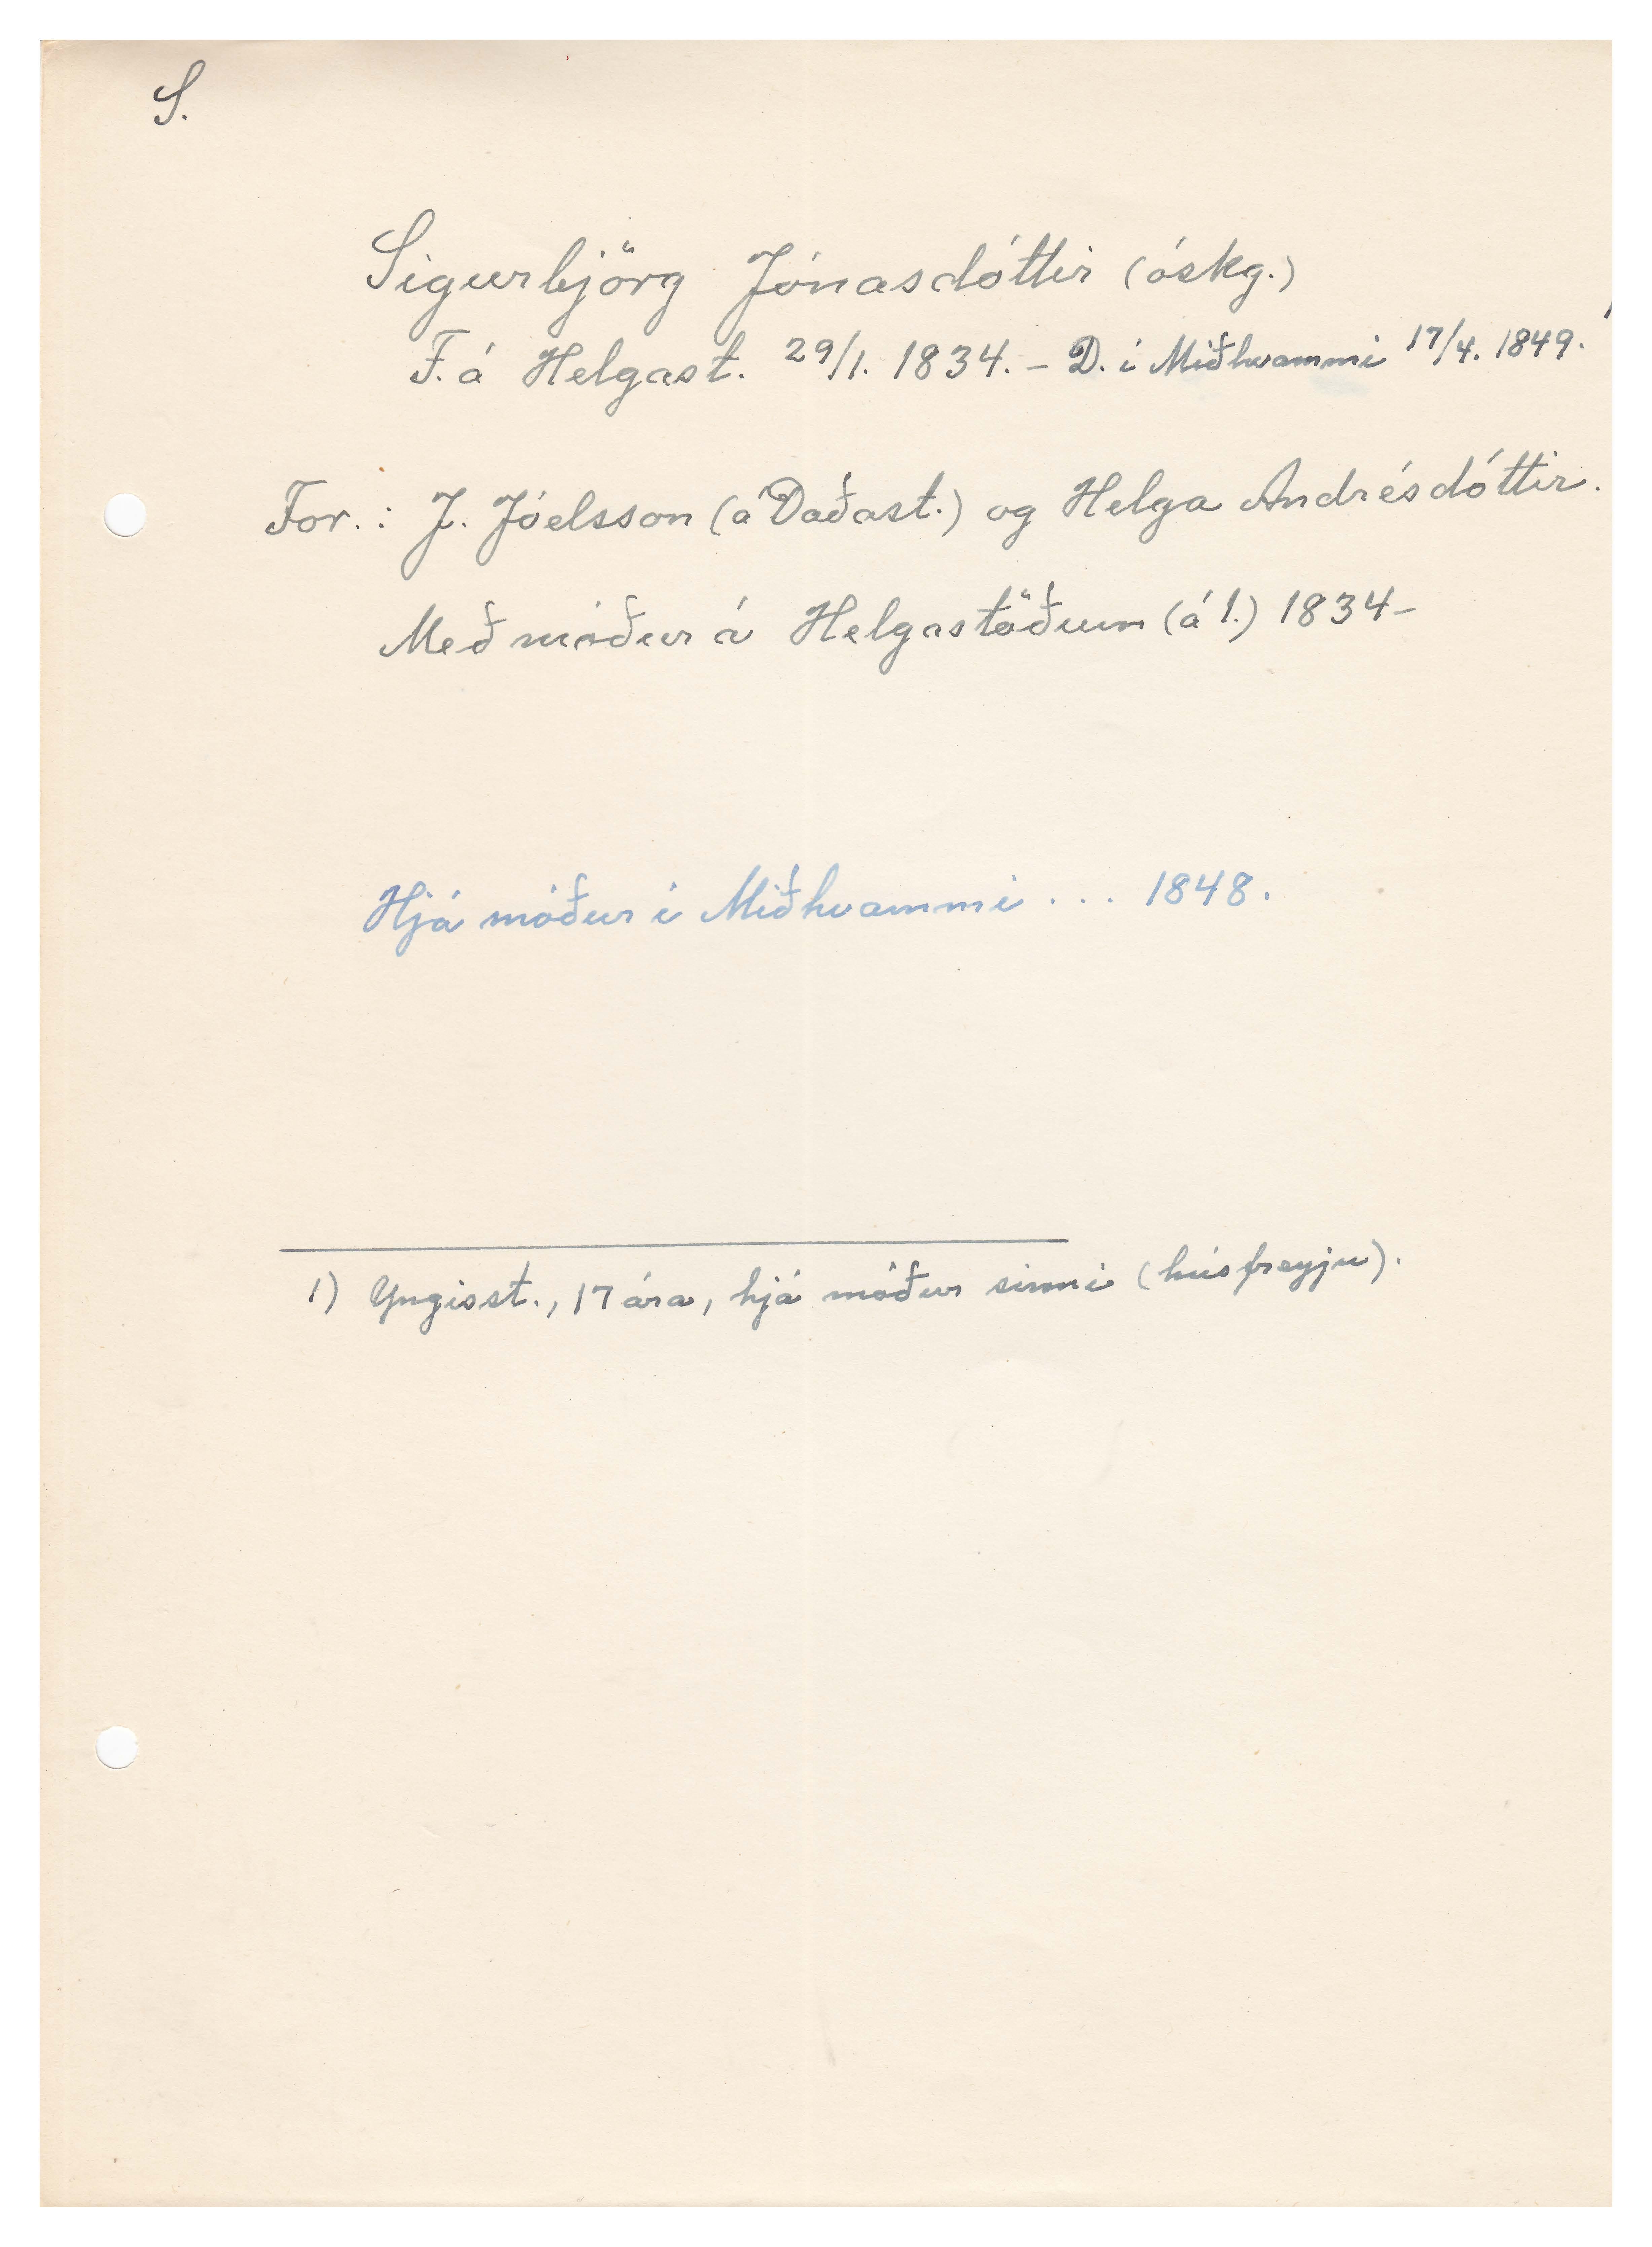 S.
Sigurbjörg Jónasdóttir (óskg.)
F. á Helgast. 29/1. 1834. – D. í Miðhvammi 17/4. 1849.
For.: J. Jóelsson (á Daðast.) og Helga Andrésdóttir.
Með móður á Helgastöðum (á 1.) 1834–
Hjá móður í Miðhvammi ... 1848.
1) Yngisst., 17 ára, hjá móður sinni (húsfreyju).